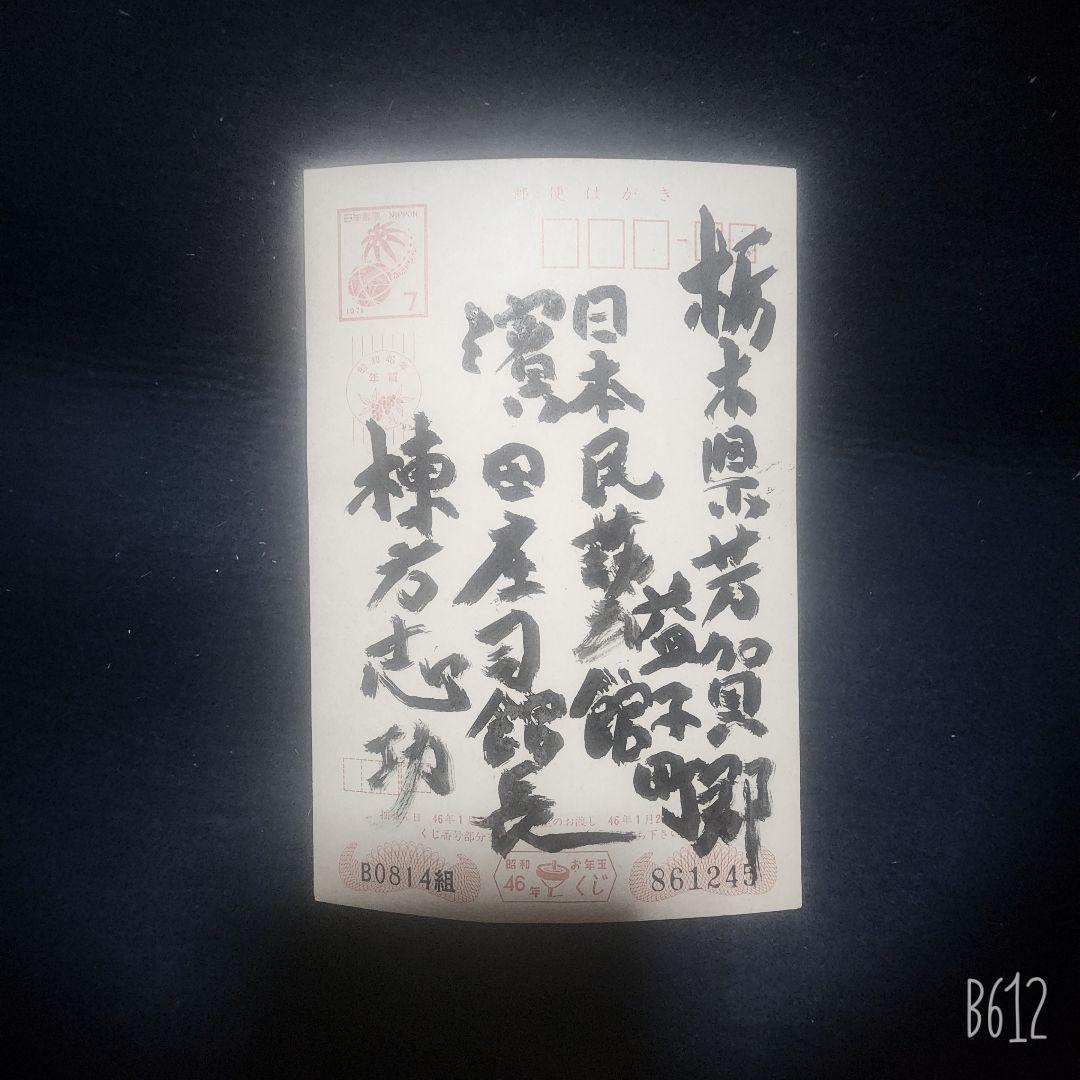 郵便はがき
日本郵便 NIPPON
7
1971
昭和46年
年賀
栃木県芳賀郡
益子町
日本民芸館
濱田庄司館長
棟方志功
46年1
のお渡し 46年1月2
くじ番号部分
B0814組
昭和
46年
お年玉
くじ
861245
B612